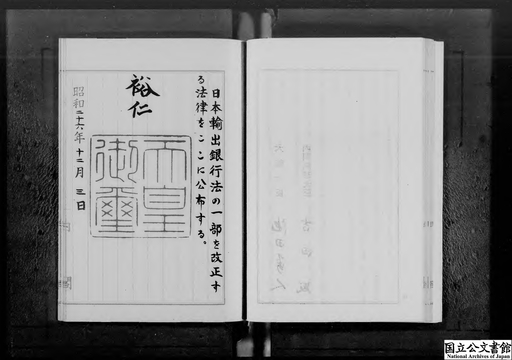 日本輸出銀行法の一部を改正す
る法律をここに公布する。
裕仁
天皇
御璽
昭和二十六年十二月三日
国立公文書館
National Archives of Japan